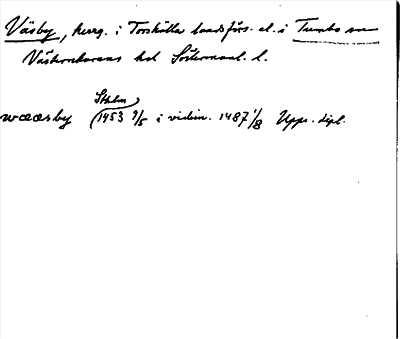 Väsby, herrg. i Torshälla landsförs. el. i Tumbo sn
Västerrekarne hd Södermanl. l.
Sthlm
wææsby (1453 9/5 i vidim. 1487 1/8 Upps. dipl.